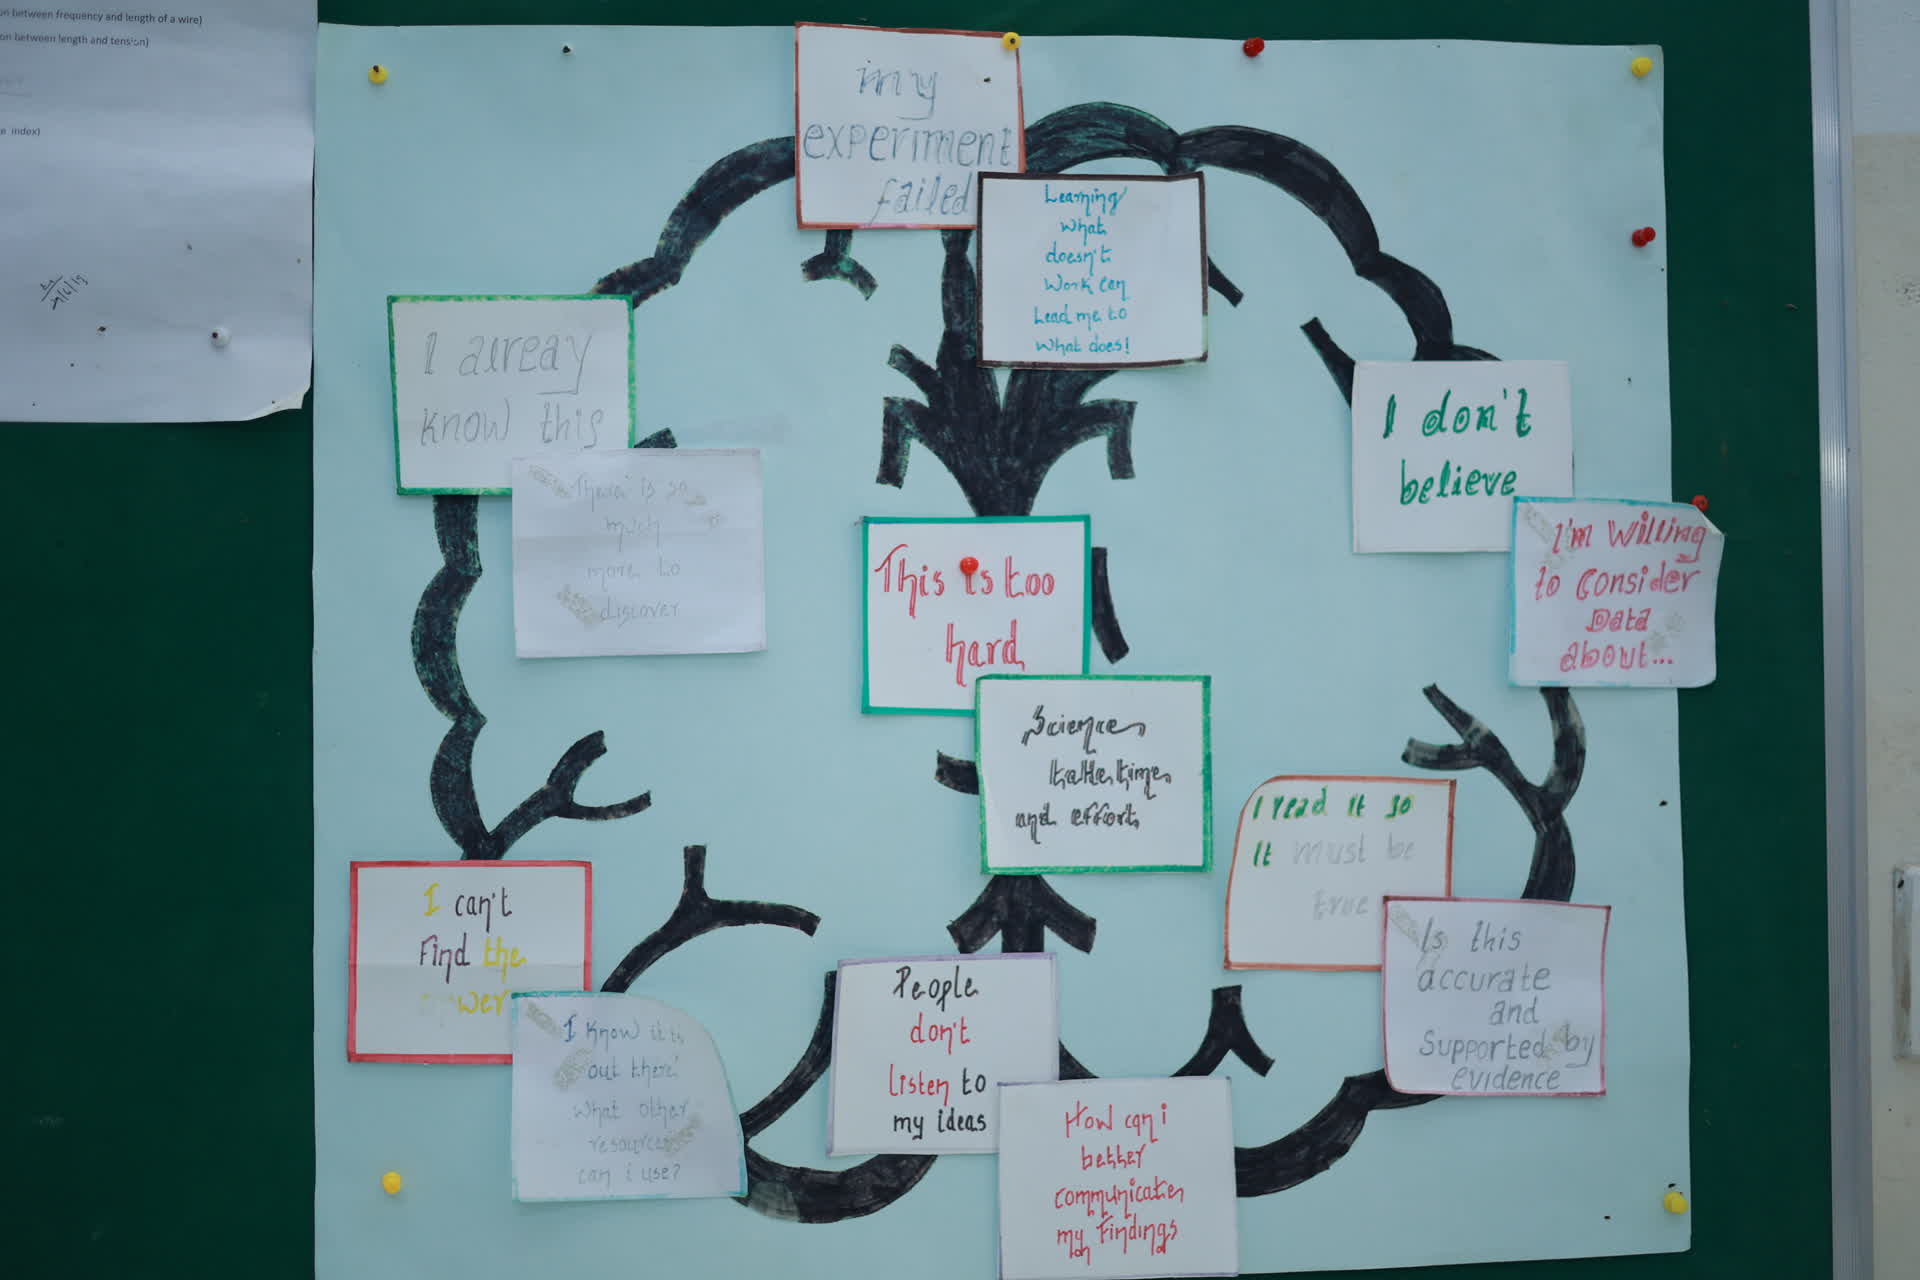 on between frequency and length of a wire)
on between length and tension)
e index)
my
experiment
failed
Learning
What
doesn't
Work can
Lead me to
What does!
I alreay
know this
There is so
much
more to
discover
I don't
believe
I'm Willing
to Consider
Data
about...
This is too
hard
Science
and effort
I read it so
it must be
true
Is this
accurate
and
Supported by
evidence
I can't
Find the
I know it is
out there!
what other
resources
can i use?
People
don't
Listen to
my ideas
How can i
better
communicate
my Findings